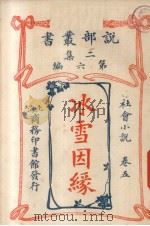 說部叢書
三集
第六編
社會小說 卷五
冰雪因緣
商務印書館發行